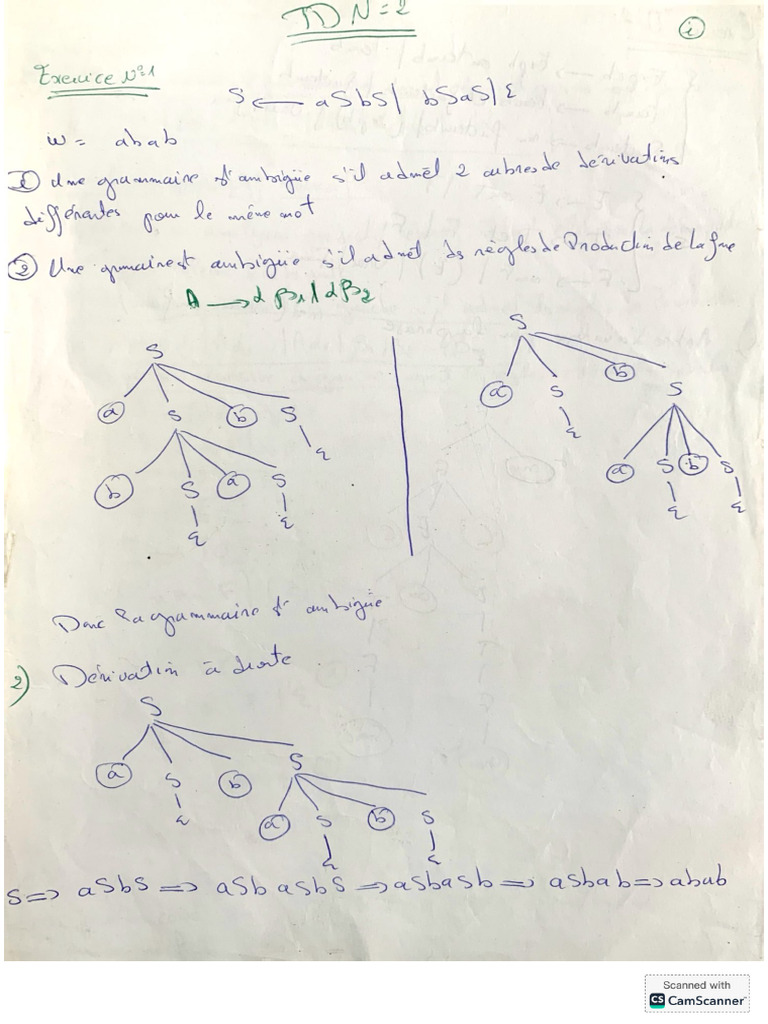 TD N=2
i
Exercice N°1
S ⟵ aSbS| bSaS|ε
w = abab
① Une grammaire st ambigüe s'il admèt 2 arbres de dérivations
différentes pour le même mot
② Une grmaire st ambigüe s'il admèt ds règles de Production de la fme
A ⟶ αβ1|αβ2
S S
a S b S a S b S
b S a S ε ε a S b S
ε ε ε ε
Donc la grammaire st ambigüe
2) Dérivation à droite
S
a S b S
ε a S b S
ε ε
S => aSbS => aSbaSbS => aSbaSb => aSbab => abab
Scanned with
CS CamScanner